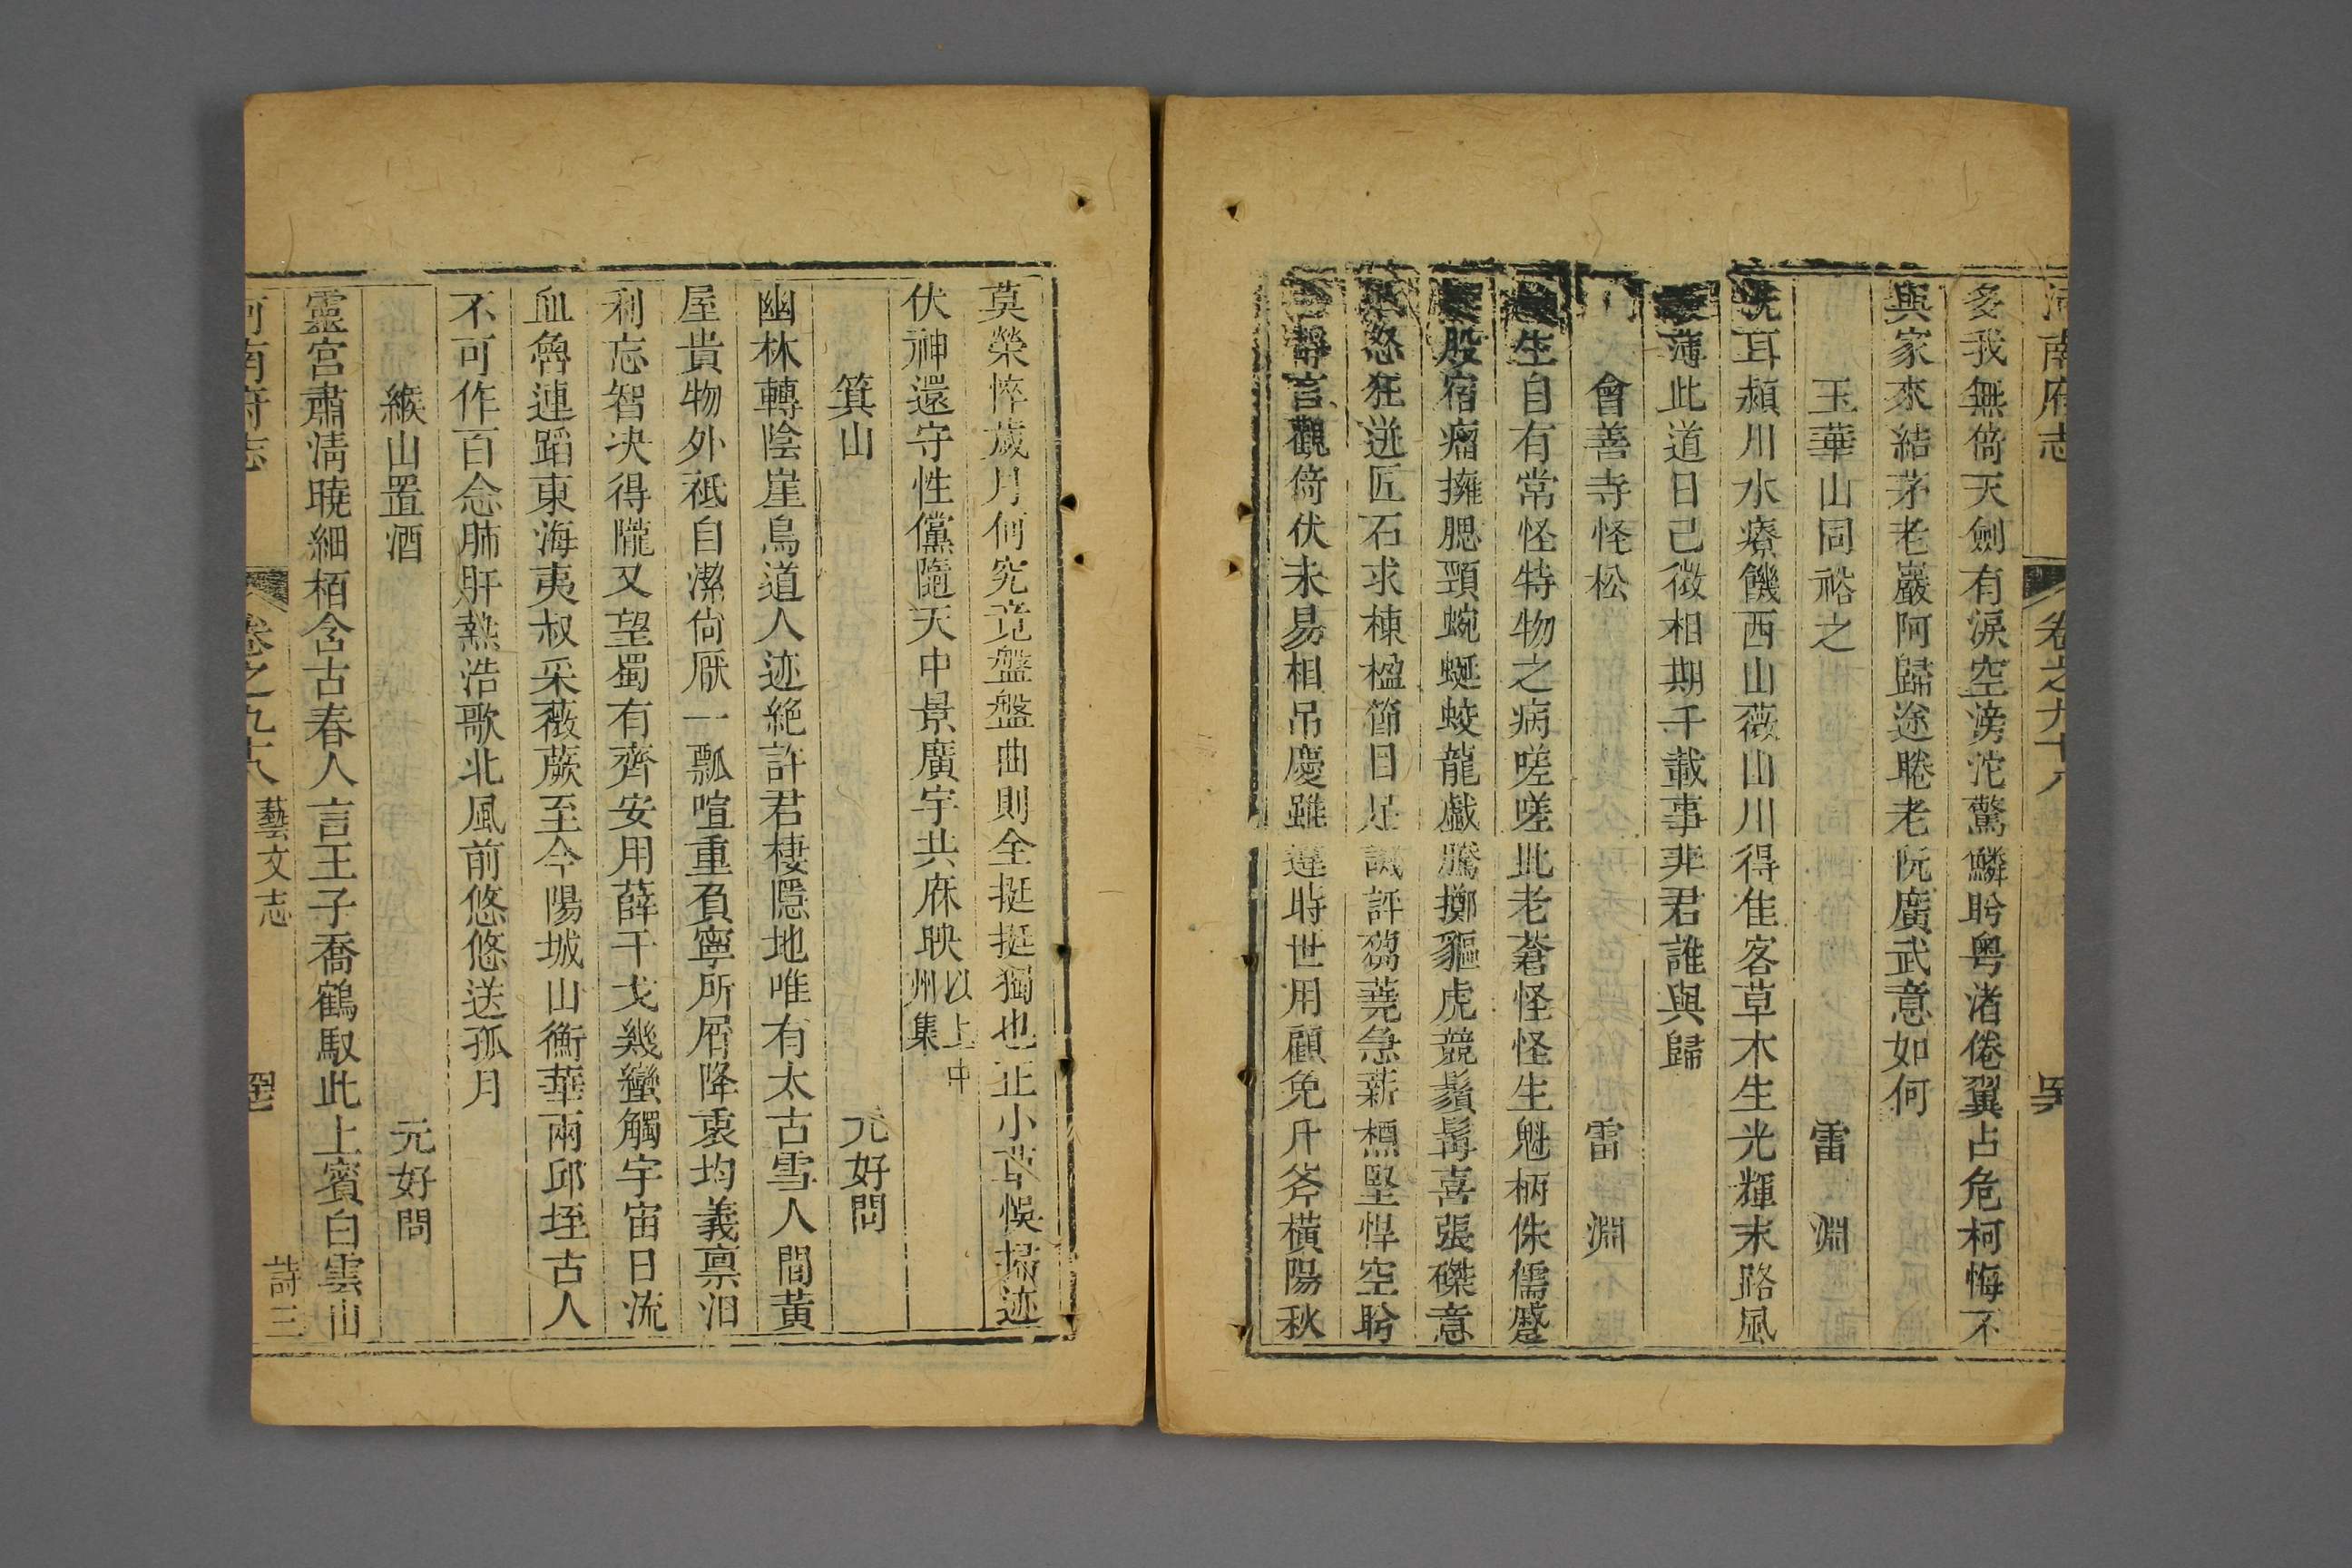 河南府志 卷之九十八
多我無倚天劍有淚空滂沱驚鱗盻粵渚倦翼占危柯悔不
與家來結茅老巖阿歸途睠老阮廣武意如何
玉華山同裕之 雷淵
洗耳潁川水療饑西山薇山川得佳客草木生光輝末路風
薄此道日已微相期千載事非君誰與歸
會善寺怪松 雷淵
生自有常怪特物之病嗟嗟此老蒼怪怪生魁柄侏儒蹙
股宿瘤擁腮頸蜿蜒蛟龍戲騰擲貙虎競鬚髯喜張磔意
怒狂逬匠石求棟楹節目足譏評芻蕘急薪槱堅悍空盻
靜言觀倚伏未易相吊慶雖違時世用顧免斤斧橫陽秋
莫榮悴歲月何究竟盤盤曲則全挺挺獨也正小草悞掃迹
伏神還守性儻隨天中景廣宇共庥映以上中
州集
箕山 元好問
幽林轉陰崖鳥道人迹絶許君棲隱地唯有太古雪人間黃
屋貴物外祗自潔尙厭一瓢喧重負寧所屑降衷均義禀汨
利忘智决得隴又望蜀有齊安用薛干戈幾蠻觸宇宙日流
血魯連蹈東海夷叔采薇蕨至今陽城山衡華兩邱垤古人
不可作百念肺肝熱浩歌北風前悠悠送孤月
緱山置酒 元好問
靈宮肅淸曉細栢含古春人言王子喬鶴馭此上賓白雲山
河南府志 卷之九十八 藝文志 詩三